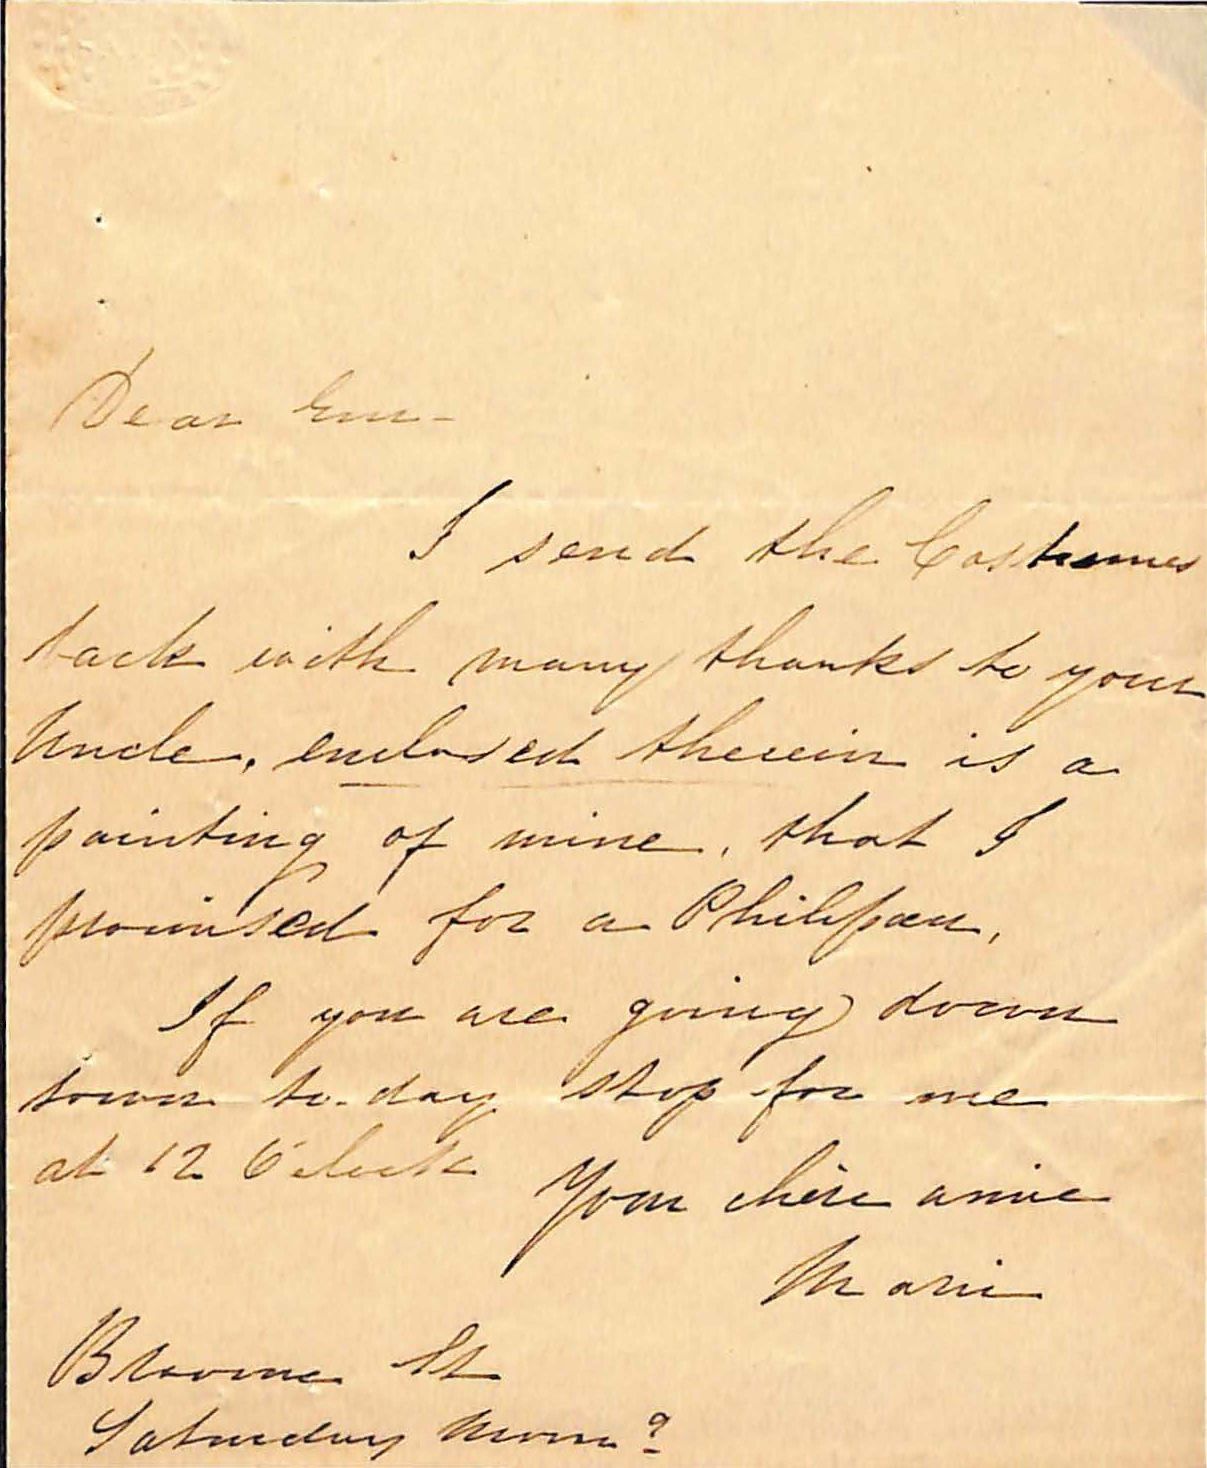 Dear Em-
I send the Costumes
back with many thanks to your
Uncle, enclosed therein is a
painting of mine, that I
promised for a Philipaen,
If you are going down
town to-day stop for me
at 12 O'clock
Your chère amie
Marie
Broome St
Saturday Morn?